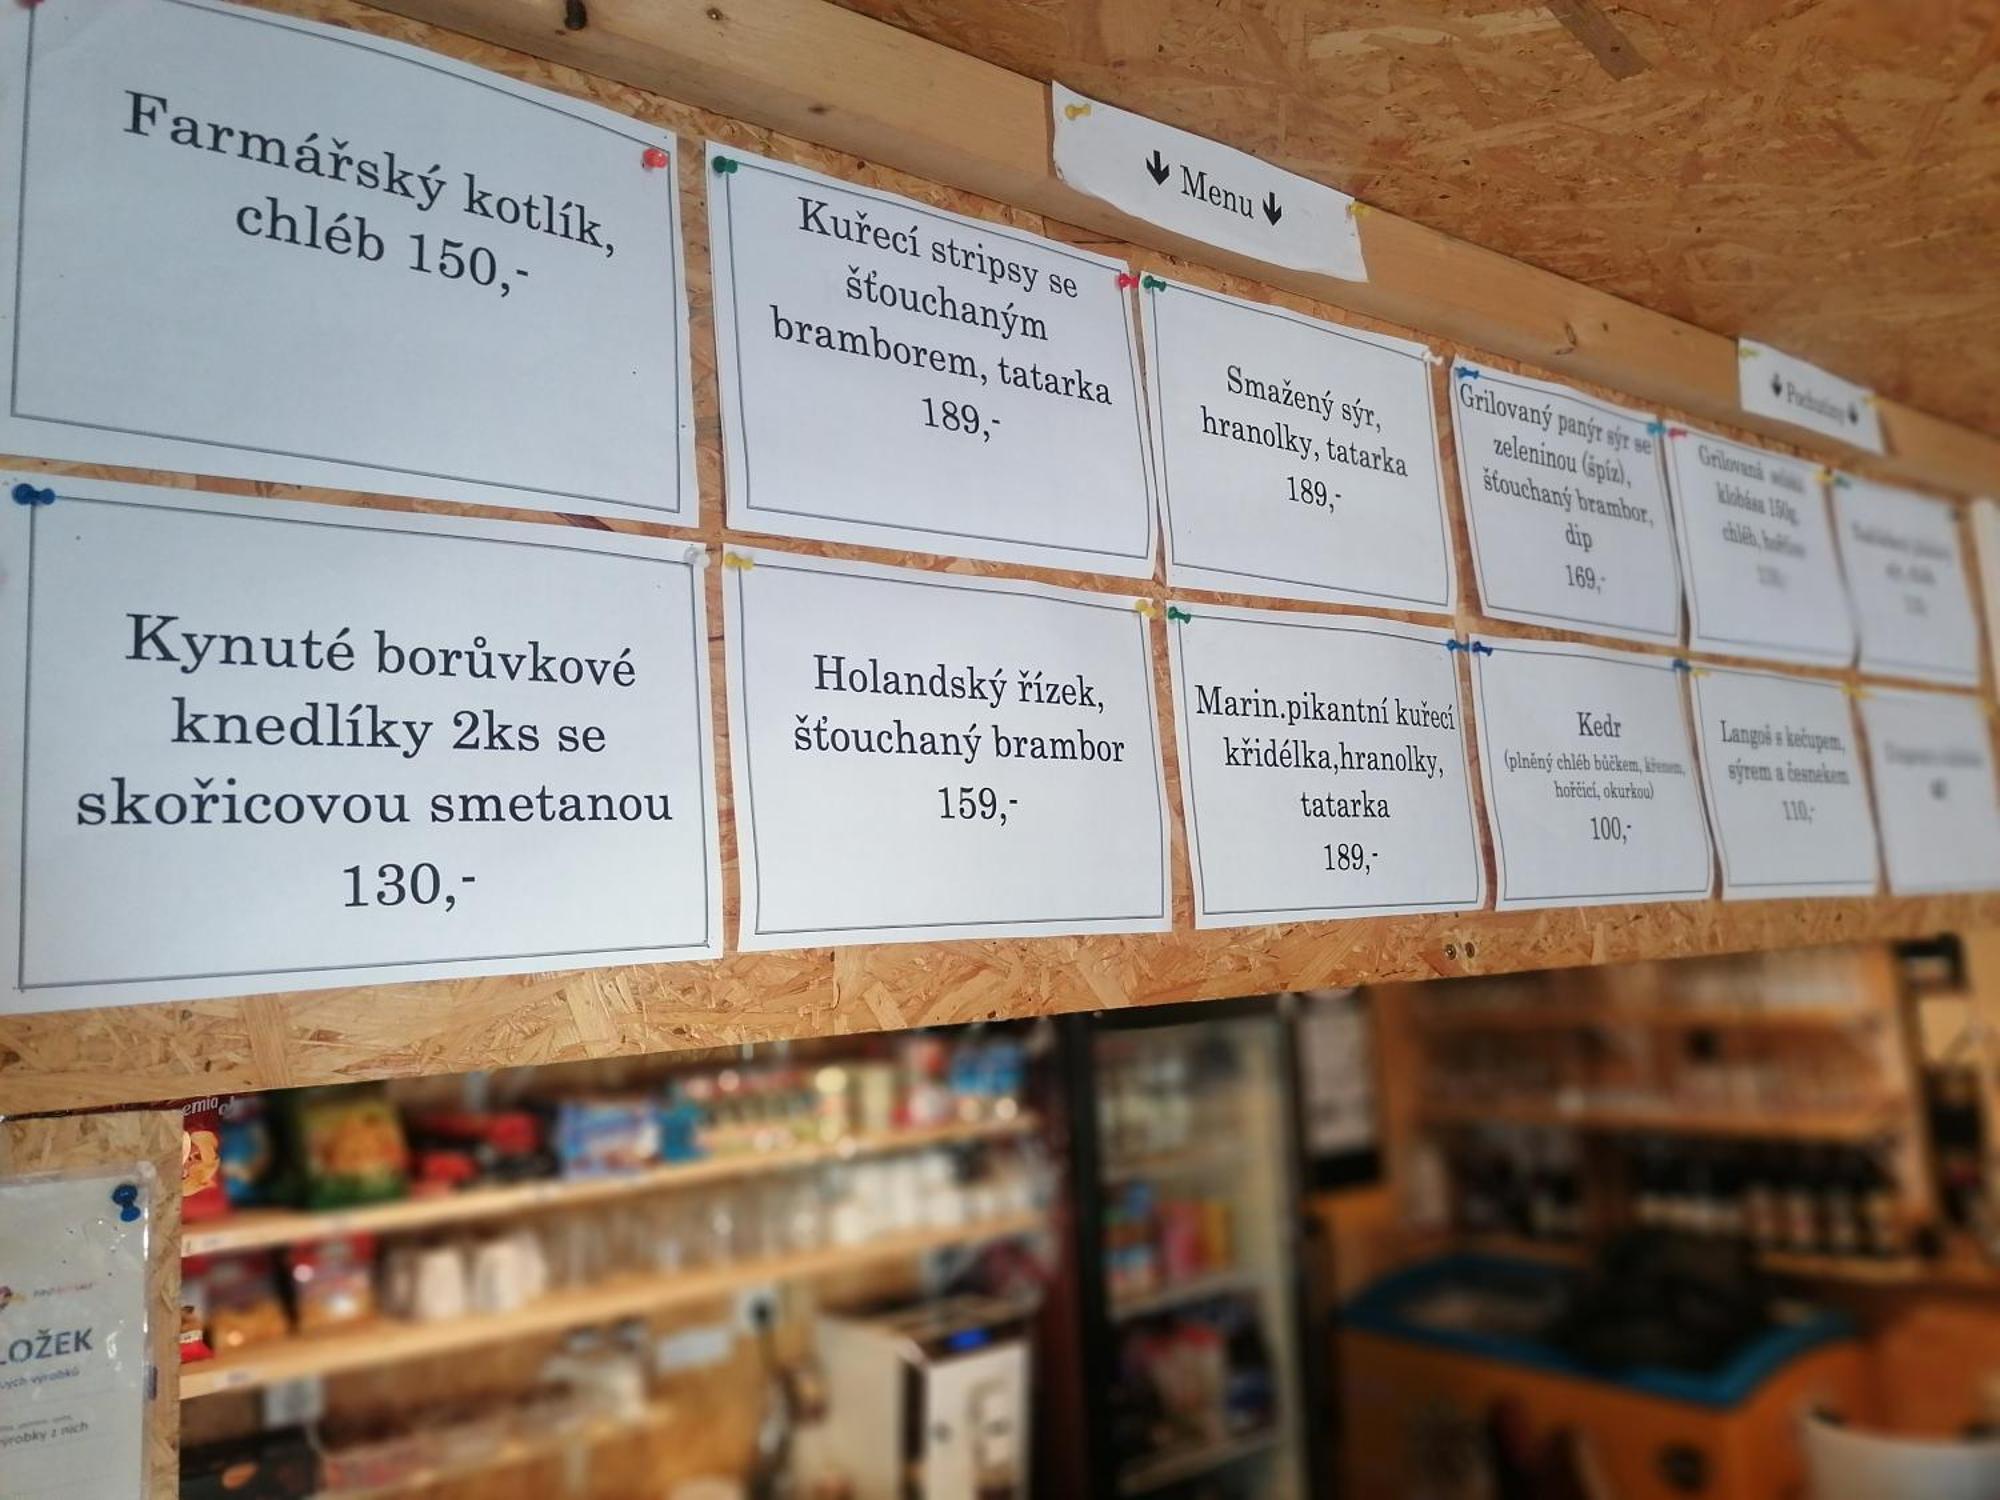 Farmářský kotlík,
chléb 150,-
Kuřecí stripsy se
šťouchaným
bramborem, tatarka
189,-
↓ Menu ↓
Smažený sýr,
hranolky, tatarka
189,-
Grilovaný panýr sýr se
zeleninou (špíz),
šťouchaný brambor,
dip
169,-
↓ Pochutiny ↓
Grilovaná
klobása 150g,
chléb, hořčice
Kynuté borůvkové
knedlíky 2ks se
skořicovou smetanou
130,-
Holandský řízek,
šťouchaný brambor
159,-
Marin.pikantní kuřecí
křidélka,hranolky,
tatarka
189,-
Kedr
(plněný chléb bůčkem, křenem,
hořčicí, okurkou)
100,-
Langoš s kečupem,
sýrem a česnekem
110,-
emia
LOŽEK
ých výrobků
výrobky z nich